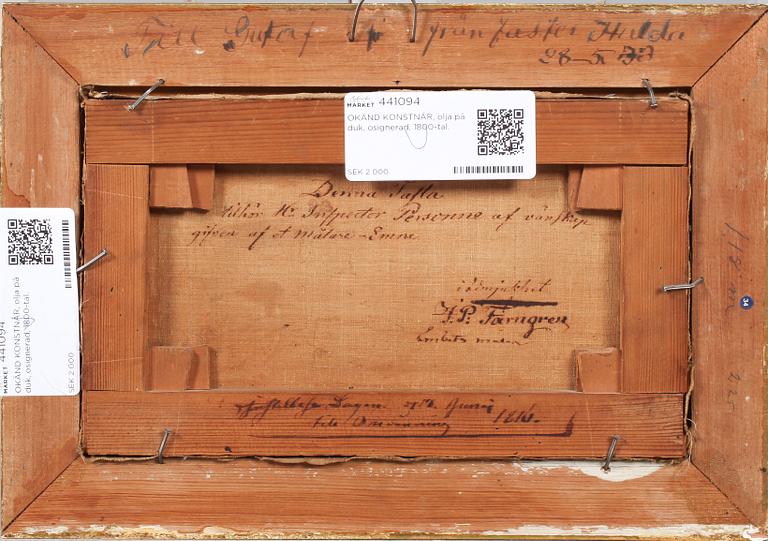 Till Gustaf från faster Hulda
28-5-33
MARKET 441094
OKÄND KONSTNÄR, olja på
duk, osignerad, 1800-tal.
SEK 2 000
Denna Tafla
tilhör H. Inspector Personne af vänskap
gifven af et målare-Emne
i ödmjukhet
J.P. Färngren
Dagen Junii
1816.
34
MARKET 441094
OKÄND KONSTNÄR, olja på
duk, osignerad, 1800-tal.
SEK 2 000